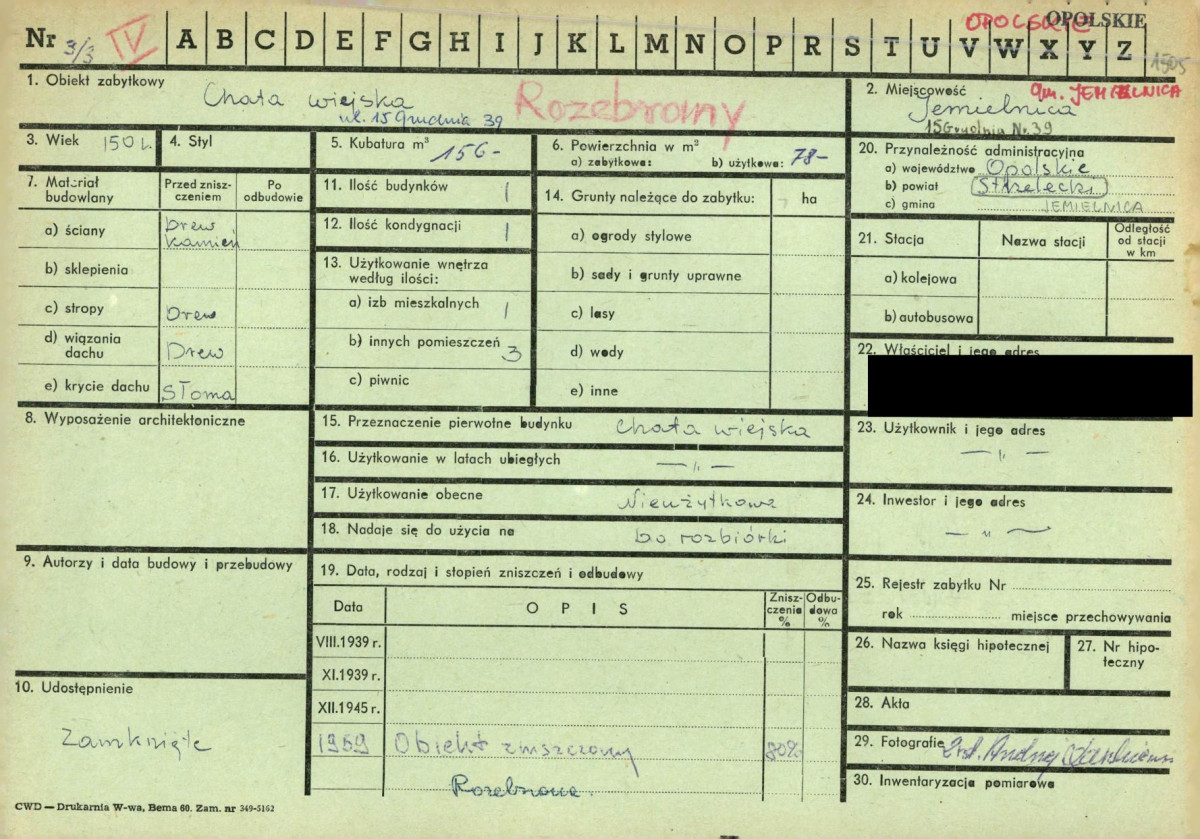 Nr 3/3 IV A B C D E F G H I J K L M N O P R S T U V W X Y Z
OPOLSKIE OPOLSKIE
1505
1. Obiekt zabytkowy
Chata wiejska
ul. 15 Grudnia 39
Rozebrany
2. Miejscowość gm. JEMIELNICA
Jemielnica
15 Grudnia Nr. 39
3. Wiek 150 l.
4. Styl
5. Kubatura m³ 156-
6. Powierzchnia w m²
a) zabytkowa: b) użytkowa: 78-
20. Przynależność administracyjna
a) województwo Opolskie
b) powiat Strzelecki
c) gmina JEMIELNICA
7. Materiał budowlany
Przed zniszczeniem
Po odbudowie
a) ściany Drew kamień
b) sklepienia
c) stropy Drew
d) wiązania dachu Drew
e) krycie dachu Słoma
11. Ilość budynków 1
12. Ilość kondygnacji 1
13. Użytkowanie wnętrza według ilości:
a) izb mieszkalnych 1
b) innych pomieszczeń 3
c) piwnic
14. Grunty należące do zabytku: ha
a) ogrody stylowe
b) sady i grunty uprawne
c) lasy
d) wody
e) inne
21. Stacja
Nazwa stacji
Odległość od stacji w km
a) kolejowa
b) autobusowa
22. Właściciel i jego adres
8. Wyposażenie architektoniczne
15. Przeznaczenie pierwotne budynku Chata wiejska
16. Użytkowanie w latach ubiegłych — „ —
17. Użytkowanie obecne Nieużytkowa
18. Nadaje się do użycia na Do rozbiórki
23. Użytkownik i jego adres
— „ —
24. Inwestor i jego adres
— „ —
9. Autorzy i data budowy i przebudowy
19. Data, rodzaj i stopień zniszczeń i odbudowy
Data OPIS Zniszczenia % Odbudowa %
VIII.1939 r.
XI.1939 r.
XII.1945 r.
1959 Obiekt zniszczony 80%
Rozebrane.
25. Rejestr zabytku Nr
rok miejsce przechowywania
26. Nazwa księgi hipotecznej
27. Nr hipoteczny
10. Udostępnienie
Zamknięte
28. Akta
29. Fotografie Andrzej
30. Inwentaryzacja pomiarowa
CWD — Drukarnia W-wa, Bema 60. Zam. nr 349-5162